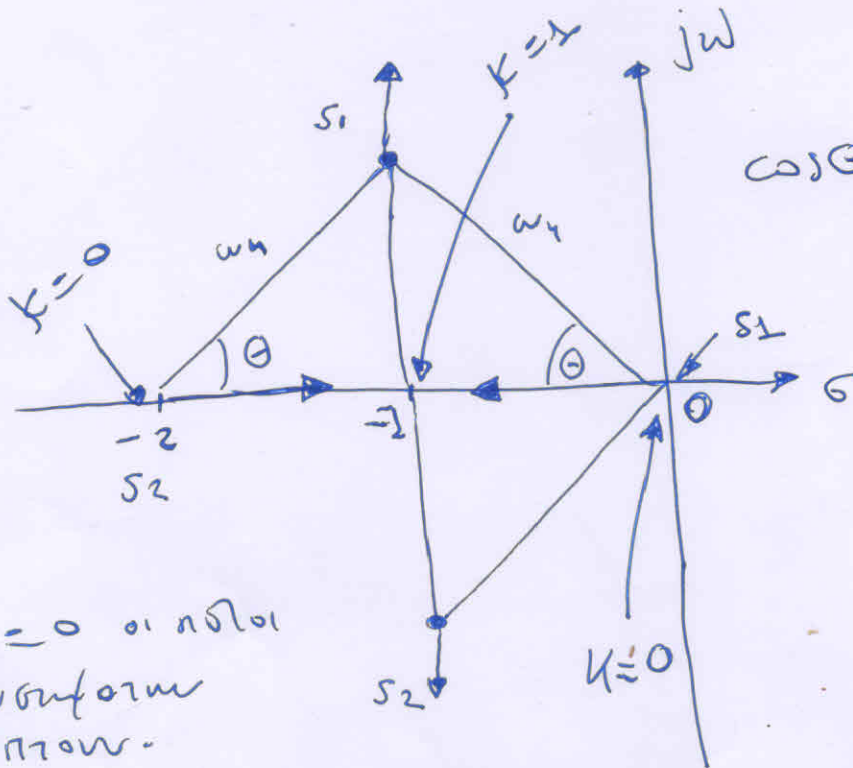 jω
K=1
S1
cosθ
ωn
ωn
K=0
θ
θ
S1
σ
-2
-1
0
S2
=0 οι πόλοι
K=0
S2